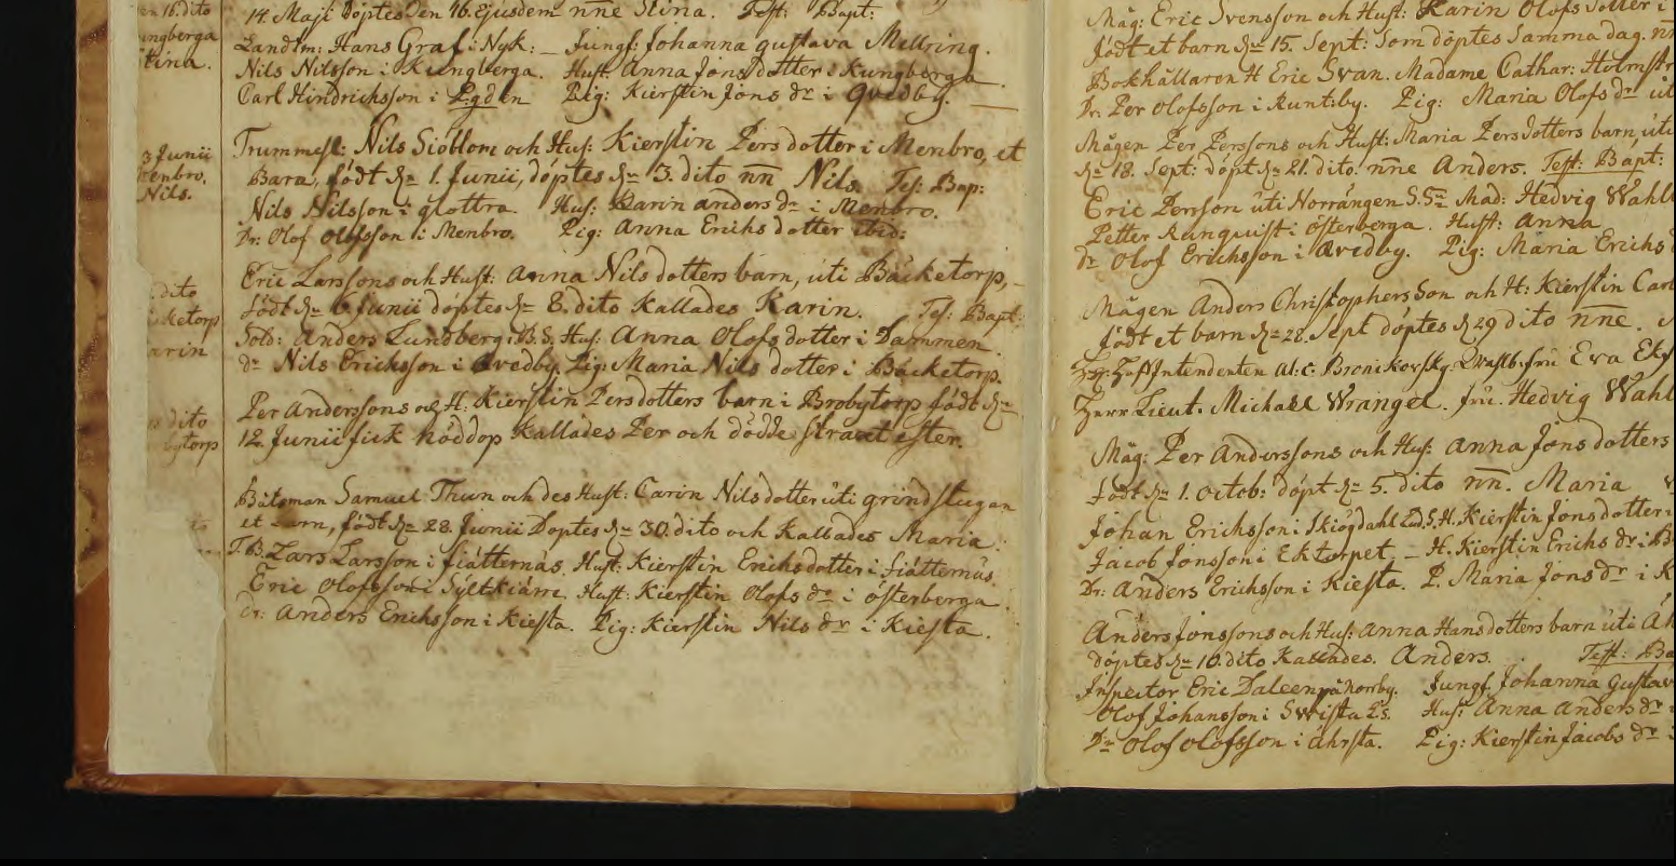 en 16. dito
ungberga
Stina.
14. Maji döptes den 16. ejusdem nn̄e Stina. Test: Bapt:
Landtm: Hans Graf i Nyk: _ Jungf: Johanna gustava Mellring.
Nils Nilsson i Kungberga. Hust. Anna Jonsdotter i Kungberga
Carl Hindrichsson i Egden Pig: Kierstin Jons dr i Qvedby.
3 Junii
Menbro.
Nils.
Trummesl: Nils Sioblom och Hus: Kierstin Persdotter i Menbro, et
Barn, födt dn 1. Junii, döptes dn 3. dito nn̄ Nils. Tes: Bap:
Nils Nilsson i glottra. Hus: Karin anders dr i Menbro.
Dr: Olof Olofsson i Menbro. Pig: Anna Erichs dotter ibid:
dito
cketorp
arin
Eric Larssons och Hust: Anna Nils dotters barn, uti Bäcketorp,
födt dn 6 Junii döptes dn 8. dito Kallades Karin. Tes: Bapt:
Sold: Anders Lundberg i B.S. Hus: Anna Olofs dotter i Dammen.
dr Nils Erichsson i Qvedby. Pig: Maria Nils dotter i Bäcketorp.
dito
bytorp
Per Anderssons och H: Kierstin Persdotters barn i Brobytorp födt dn
12. Junii fick nöddop Kallades Per och dödde straxt efter.
Båtsman Samuel Thun och des Hust: Carin Nilsdotter uti grindstugan
et barn, födt dn 28. Junii Döptes dn 30. dito och Kallades Maria.
T.B. Lars Larsson i fiätternäs. Hust: Kierstin Erichsdotter i fiätternäs.
Eric Olofsson i Syltkiärn. Hust: Kierstin Olofs dr i österberga.
dr: Anders Erichsson i Kiesta. Pig: Kierstin Nils dr i Kiesta.
Mäg: Eric Svensson och Hust: Karin Olofs dotter i
födt et barn dn 15. Sept: som döptes samma dag.
Bokhållaren H Eric Svan. Madame Cathar: Holmstr
Dr. Per Olofsson i Runt:by. Pig: Maria Olofs dr uti
Mågen Per Perssons och Hust: Maria Persdotters barn, uti
dn 18. Sept: döpt dn 21. dito. nn̄e Anders. Test: Bapt:
Eric Persson uti Norrängen Mad: Hedvig Wahl
Petter Runquist i österberga. Hust: Anna
dr Olof Erichsson i Qvedby. Pig: Maria Erichs
Mågen Anders Christophersson och H: Kierstin Carl
födt et barn dn 28. Sept döptes d 29 dito nn̄e.
Intendenten Al: C: Bronikovsky: fru Eva Ek
Herr Lieut. Michael Wrangel. fru. Hedvig Wahl
Mäg: Per Anderssons och Hus: Anna Jonsdotters
födt dn 1. Octob: döpt dn 5. dito nn̄. Maria
Johan Erichsson i Skiögdahl H. Kierstin Jonsdotter i
Jacob Jonsson i Ektorpet _ H. Kierstin Erichs dr i B
Dr: Anders Erichsson i Kiesta. P. Maria Jons dr i K
Anders Jonssons och Hus: Anna Hansdotters barn uti Åh
döptes dn 10. dito Kallades. Anders. Test: Ba
Inspector Eric Daleen på Norrby. Jungf. Johanna Gustav
Olof Johansson i Swista Hus: Anna Anders dr
Dr Olof Olofsson i åhrsta. Pig: Kierstin Jacobs dr